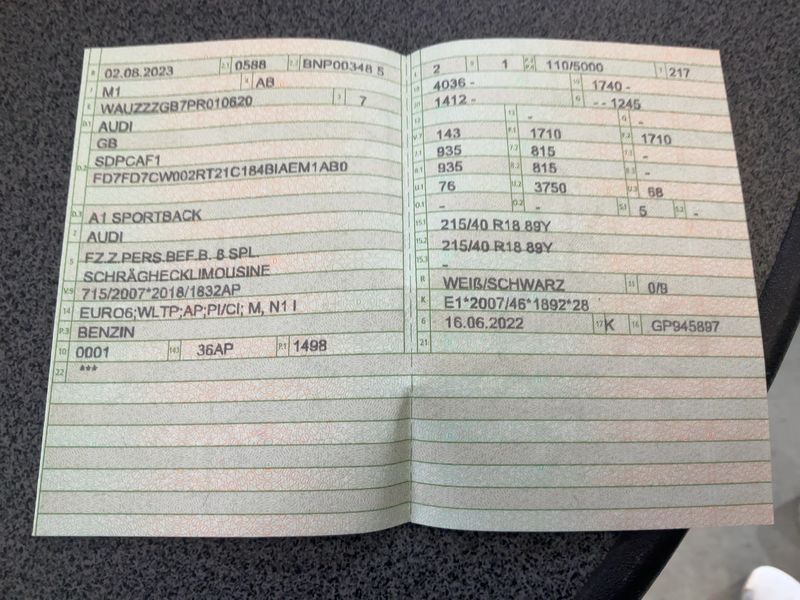 B 02.08.2023 2.1 0588 2.2 BNP00348 5
J M1 4 AB
E WAUZZZGB7PR010620 3 7
D.1 AUDI
GB
D.2 SDPCAF1
FD7FD7CW002RT21C184BIAEM1AB0
D.3 A1 SPORTBACK
2 AUDI
5 FZ.Z.PERS.BEF.B. 8 SPL.
SCHRÄGHECKLIMOUSINE
V.9 715/2007*2018/1832AP
14 EURO6;WLTP;AP;PI/CI; M, N1 I
P.3 BENZIN
10 0001 14.1 36AP P.1 1498
22 ***
L 2 9 1 P.2 P.4 110/5000 T 217
18 4036 - 19 1740 -
20 1412 - G - - 1245
12 - 13 - Q -
V.7 143 F.1 1710 F.2 1710
7.1 935 7.2 815 7.3 -
8.1 935 8.2 815 8.3 -
U.1 76 U.2 3750 U.3 68
O.1 - O.2 - S.1 5 S.2 -
15.1 215/40 R18 89Y
15.2 215/40 R18 89Y
15.3 -
R WEIß/SCHWARZ 11 0/9
K E1*2007/46*1892*28
6 16.06.2022 17 K 16 GP945897
21